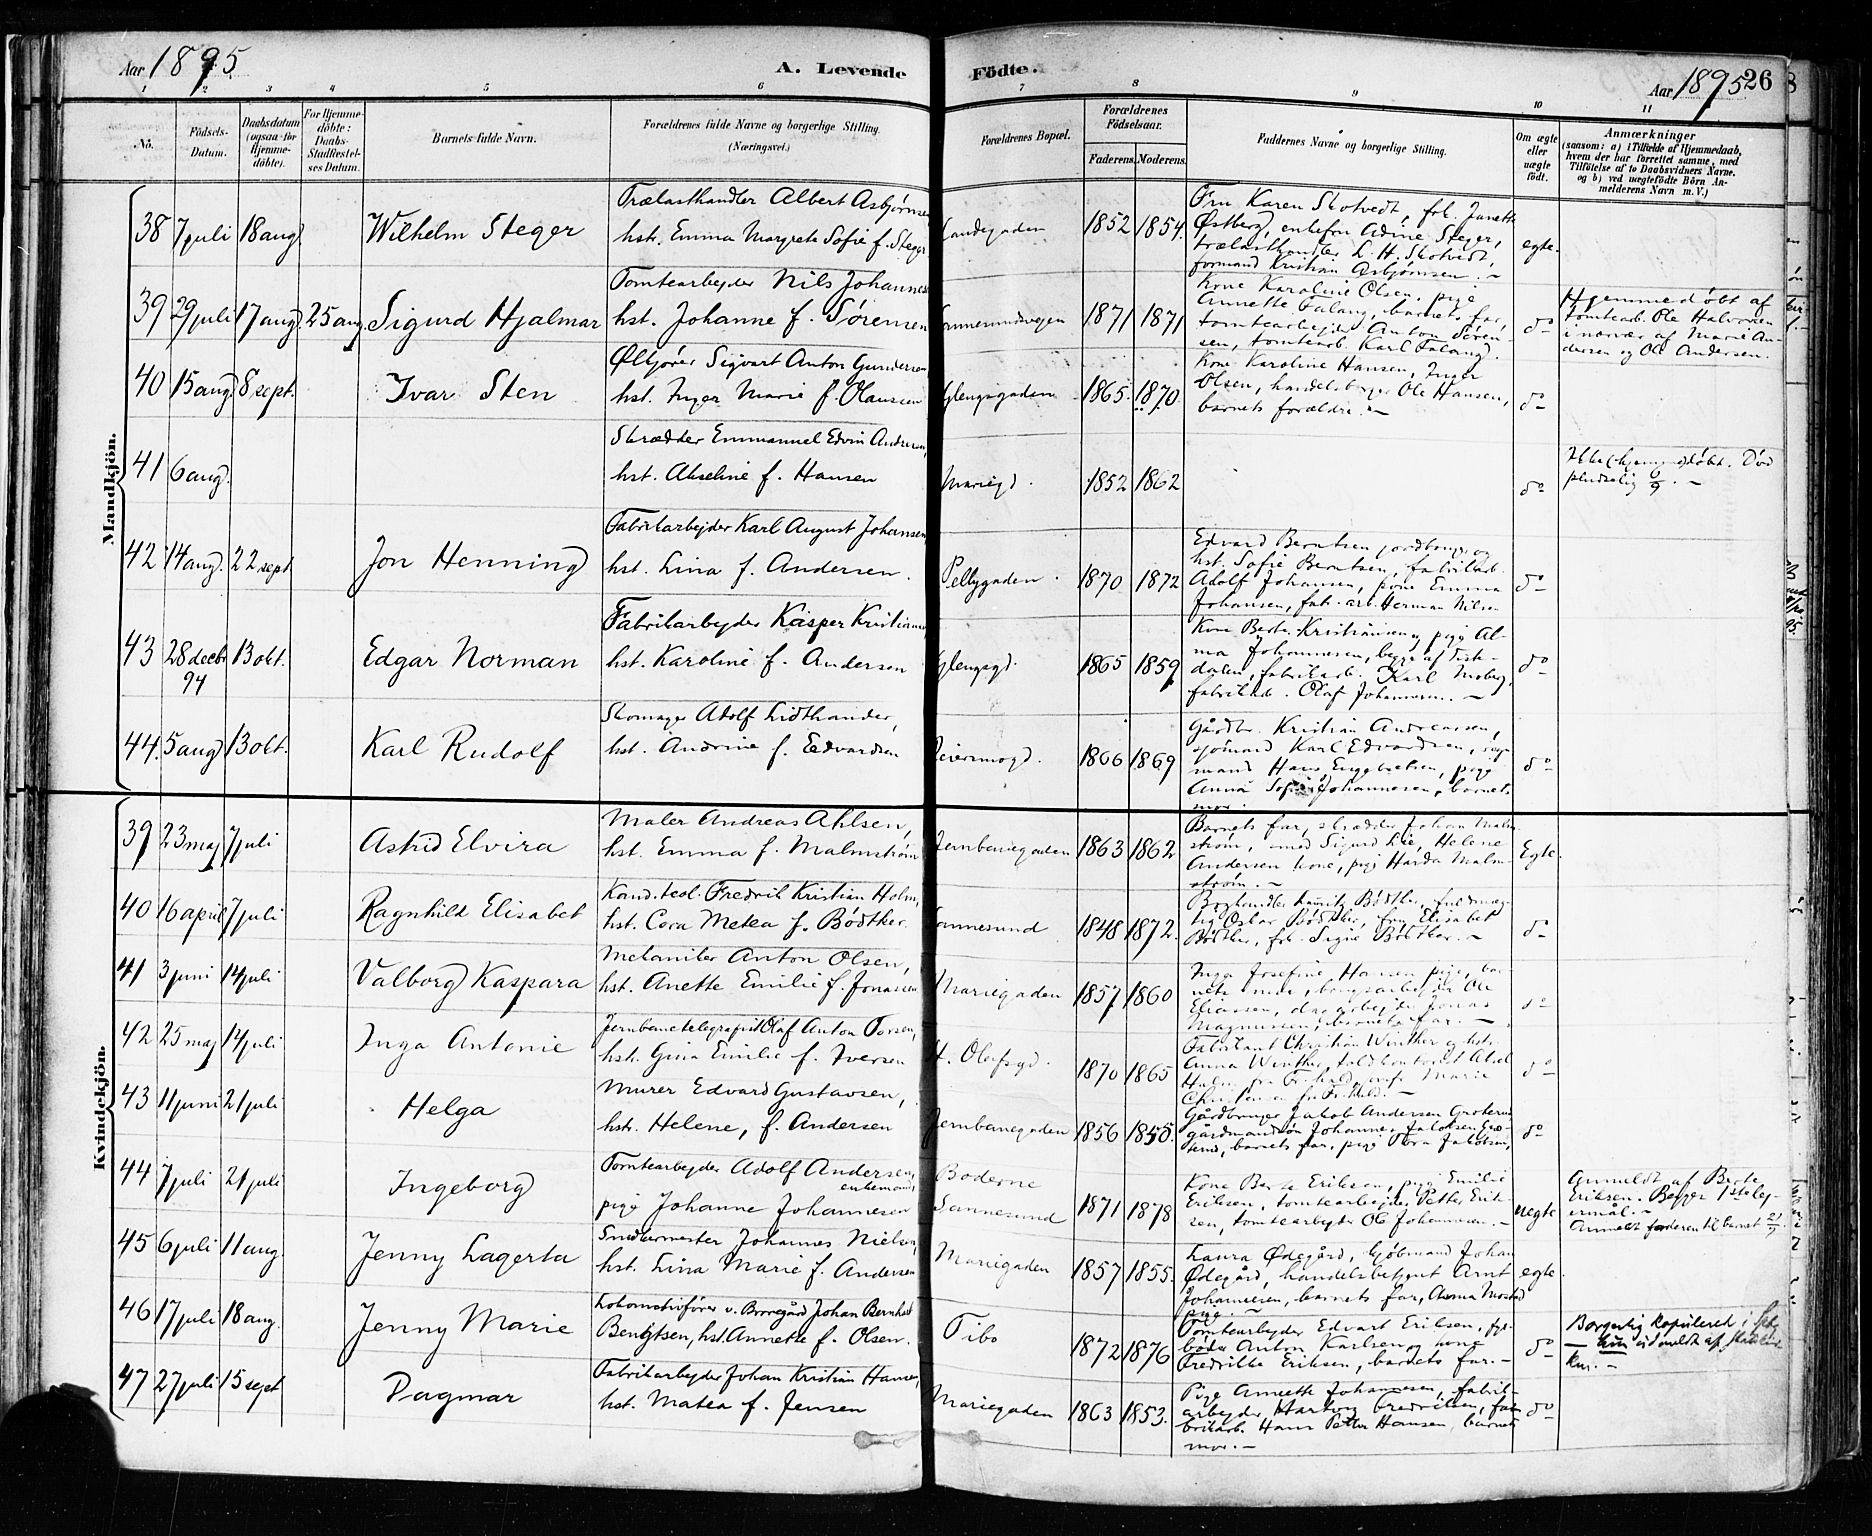 Aar 1895
A. Levende
Födte.
Aar 1895
26
1 2 3 4 5 6 7 8 9 10 11
No.
Födsels-Datum.
Daabsdatum (ogsaa for Hjemme-döbte).
For Hjemme-döbte: Daabs-Stadfæstel-ses Datum.
Barnets fulde Navn.
Forældrenes fulde Navne og borgerlige Stilling. (Næringsvei.)
Forældrenes Bopæl.
Forældrenes Födselsaar.
Faderens. Moderens.
Faddernes Navne og borgerlige Stilling.
Om ægte eller uægte födt.
Anmærkninger
(saasom: a) i Tilfælde af Hjemmedaab, hvem der har forrettet samme, med Tilföielse af to Daabsvidners Navne. og b) ved uægtefödte Börn An-melderens Navn m. V.)
Mandkjön.
38 7 juli 18 aug. Wilhelm Steger
Trælasthandler Albert Asbjørnsen
hst. Emma Margrete Sofie f. Steger
1852 1854.
Fru Karen Skotvedt, frk. Janette
Østberg, enkefru Adine Steger,
trælasthandler L. H. Skotvedt,
formand Kristian Asbjørnsen. –
egte.
39 29 juli 17 aug. 25 aug. Sigurd Hjalmar
Tomtearbejder Nils Johannes
hst. Johanne f. Sørensen
1871 1871
Kone Karoline Olsen, pige
Annette Falang, barnets far,
tomtearbejder Anton Sören-
sen, tomtearb. Karl Falang.
do
Hjemmedøbt af
tomtearb. Ole Halvorsen
i nærvær af Marie An-
dersen og Ole Andersen.
40 15 aug. 8 sept. Ivar Sten
Ølkjører Sigvart Anton Gundersen
hst. Inger Marie f. Olaussen
Glengsgaden
1865. 1870.
Kone Karoline Hansen, Inger
Olsen, Ole Hansen,
barnets forældre. –
do
41 6 aug.
Skrædder Emmanuel Edvin Andersen,
hst. Akseline f. Hansen
Mariegd.
1852 1862
do
Ikke (hjemme)døbt. Död
pludselig 6/9. –
42 14 aug. 22 sept. Jon Henning
Fabrikarbejder Karl August Johansen
hst. Lina f. Andersen.
Pellygaden.
1870 1872
Edvard Berntsen jordbruger og
hst. Sofie Berntsen, fabrikarb.
Adolf Johansen, Emma
Johansen, fab. arb. Herman Nilsen
do
43 28 decbr 94 13 okt. Edgar Norman
Fabrikarbejder Kasper Kristiansen
hst. Karoline f. Andersen
Glengsgd.
1865 1859
Kone Berte Kristiansen, pige Al-
ma Johannesen, begge af Tist-
dalen, fabrikarb. Karl Moberg,
fabrikarb. Olaf Johannesen. –
do
44. 5 aug. 13 okt. Karl Rudolf
Skomager Adolf Lidthander,
hst. Andrine f. Edvardsen
1866 1869
Gårdbr. Kristian Andreassen,
sjømand Karl Edvardsen,
mand Hans Engebretsen, pige
Anna Sofie Johannesen, barnets
mor.
do
Kvindekjön.
39 23 maj 7 juli Astrid Elvira
Maler Andreas Ahlsen,
hst. Emma f. Malmstrøm
Jernbanegaden
1863 1862.
Barnets far, skrædder Johan Malm-
strøm, Sigurd Lie, Helene
Andersen kone, pige Harda Malm-
strøm. –
Egte.
40 16 april 7 juli Ragnhild Elisabet
Kand. teol. Fredrik Kristian Holm,
hst. Cora Metea f. Bødtker.
Sannesund
1848 1872.
Boghandler Bødtker, fuldmæg-
tig Oskar Bødtker, frøk Elisabet
Bødtker, frk. Signe Bödtker. –
do
41 3 juni 14 juli Valborg Kaspara
Mekaniker Anton Olsen,
hst. Anette Emilie f. Jonassen
Mariegaden
1857 1860
Inga Josefine Hansen pige, bar-
nets mor, Ole
Eliassen, dagarbejder Jonas
Magnussen, barnets far. –
do
42 25 maj 14 juli Inga Antonie
Jernbanetelegrafist Olaf Anton Torsen,
hst. Gina Emilie f. Iversen
St. Olafsgd.
1870 1865
Fabrikant Christian Winther og hst.
Anna Winther, Aksel
Holm fra Fr.hald, Marie
fra Fr.hald. –
do
43 11 juni 21 juli Helga
Murer Edvard Gustavsen,
hst. Helene, f. Andersen
Jernbanegaden
1856 1850.
Gårdbruger Jakob Andersen Grøterud
gårdmandssøn Johannes Jakobsen
barnets far, pige Thora Jakobsen,
do
44 7 juli 21 juli Ingeborg
Tomtearbejder Adolf Andersen,
enkemand,
pige Johanne Johannesen
Boderne
Sannesund
1871 1878
Kone Berte Eriksen, pige Emilie
Eriksen, tomtearbejder Petter Erik-
sen, tomtearbejder Ole Johannesen. –
uegte
Anmeldt af Berte
Eriksen. Begges 1ste lej-
ermål. –
Anmeldt faderen til barnet 21/7
45 6 juli 11 aug. Jenny Lagerta
Smedmester Johannes Nielsen,
hst. Lina Marie f. Andersen
Mariegaden
1857 1855.
Laura Ødegård, kjøbmand Johan
Ødegård, handelsbetjent Arnt
Johannesen, barnets far, Anna Mostad
pige –
egte
46 17 juli 18 aug. Jenny Marie
Lokomotivfører v. Borregård Johan Bernhard
Bengtsen, hst. Annette f. Olsen.
Tibo
1872 1876
Tomtearbejder Edvart Eriksen, fyr-
bøder Anton Karlsen, kone
Fredrikke Eriksen, barnets far. –
do
Borgerlig kopuleret i
– hun udmeldt af
47 27 juli 15 sept. Dagmar
Fabrikarbejder Johan Kristian Hansen,
hst. Matea f. Jensen
Mariegaden
1863 1853.
Pige Annette Johannesen, fabrik-
arbejder Hartvig Fredriksen, fa-
brikarb. Hans Petter Hansen, barnets
mor. –
do